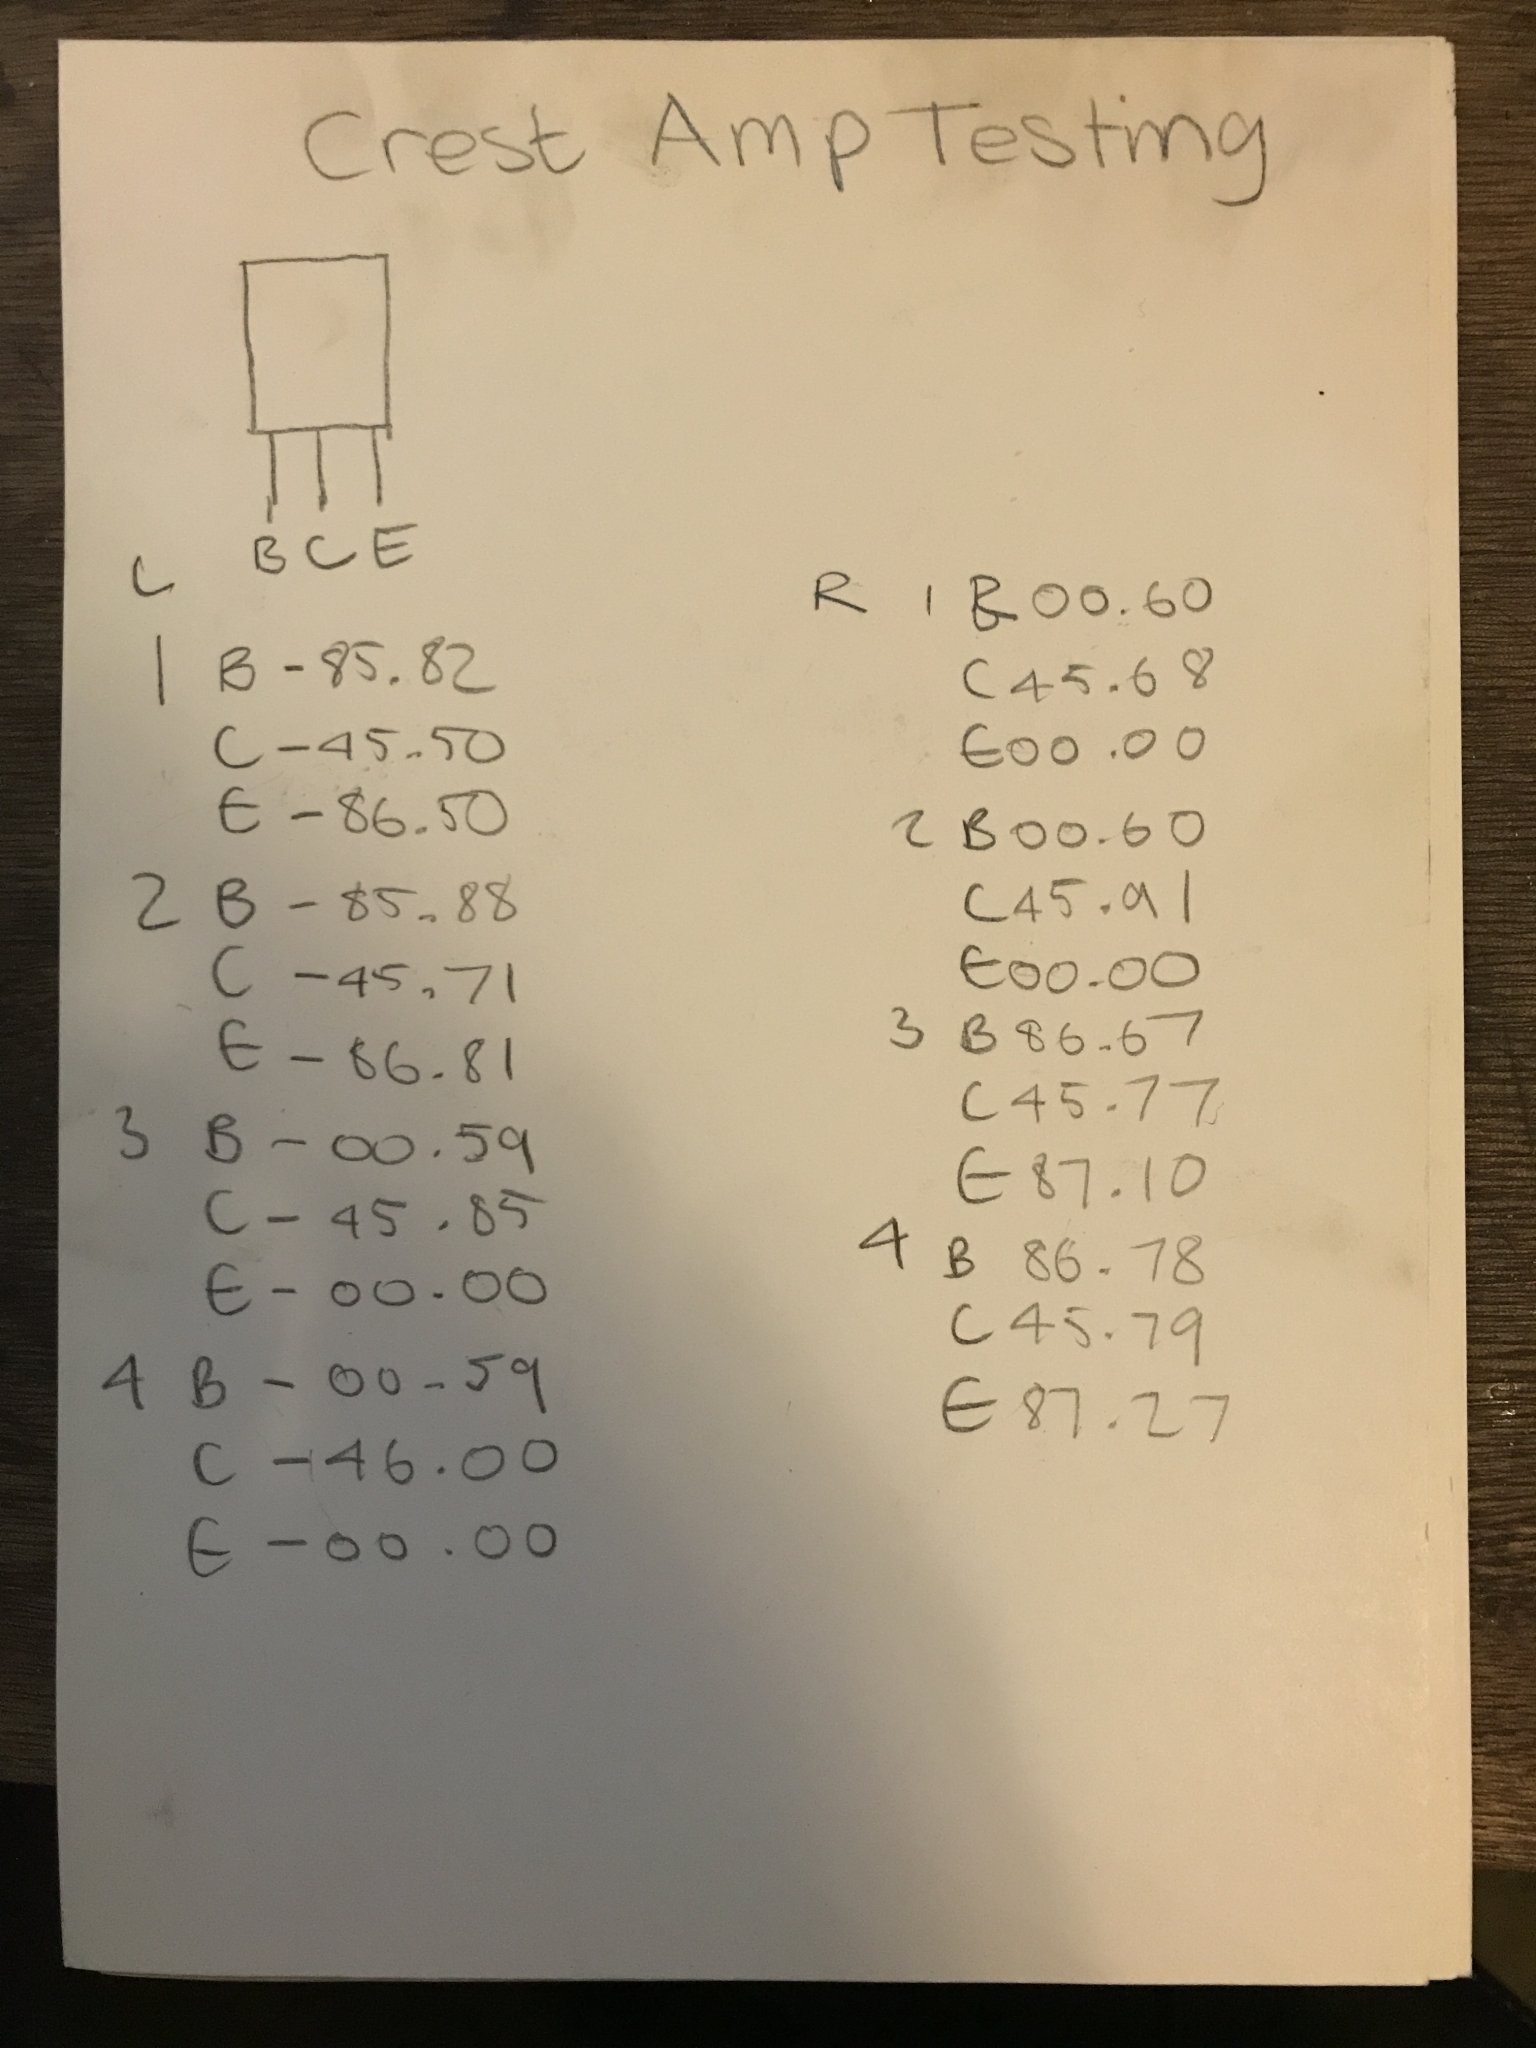 Crest Amp Testing
B C E
L
1 B - 85.82
C - 45.50
E - 86.50
2 B - 85.88
C - 45.71
E - 86.81
3 B - 00.59
C - 45.85
E - 00.00
4 B - 00.59
C - 46.00
E - 00.00
R 1 B 00.60
C 45.68
E 00.00
2 B 00.60
C 45.91
E 00.00
3 B 86.67
C 45.77
E 87.10
4 B 86.78
C 45.79
E 87.27